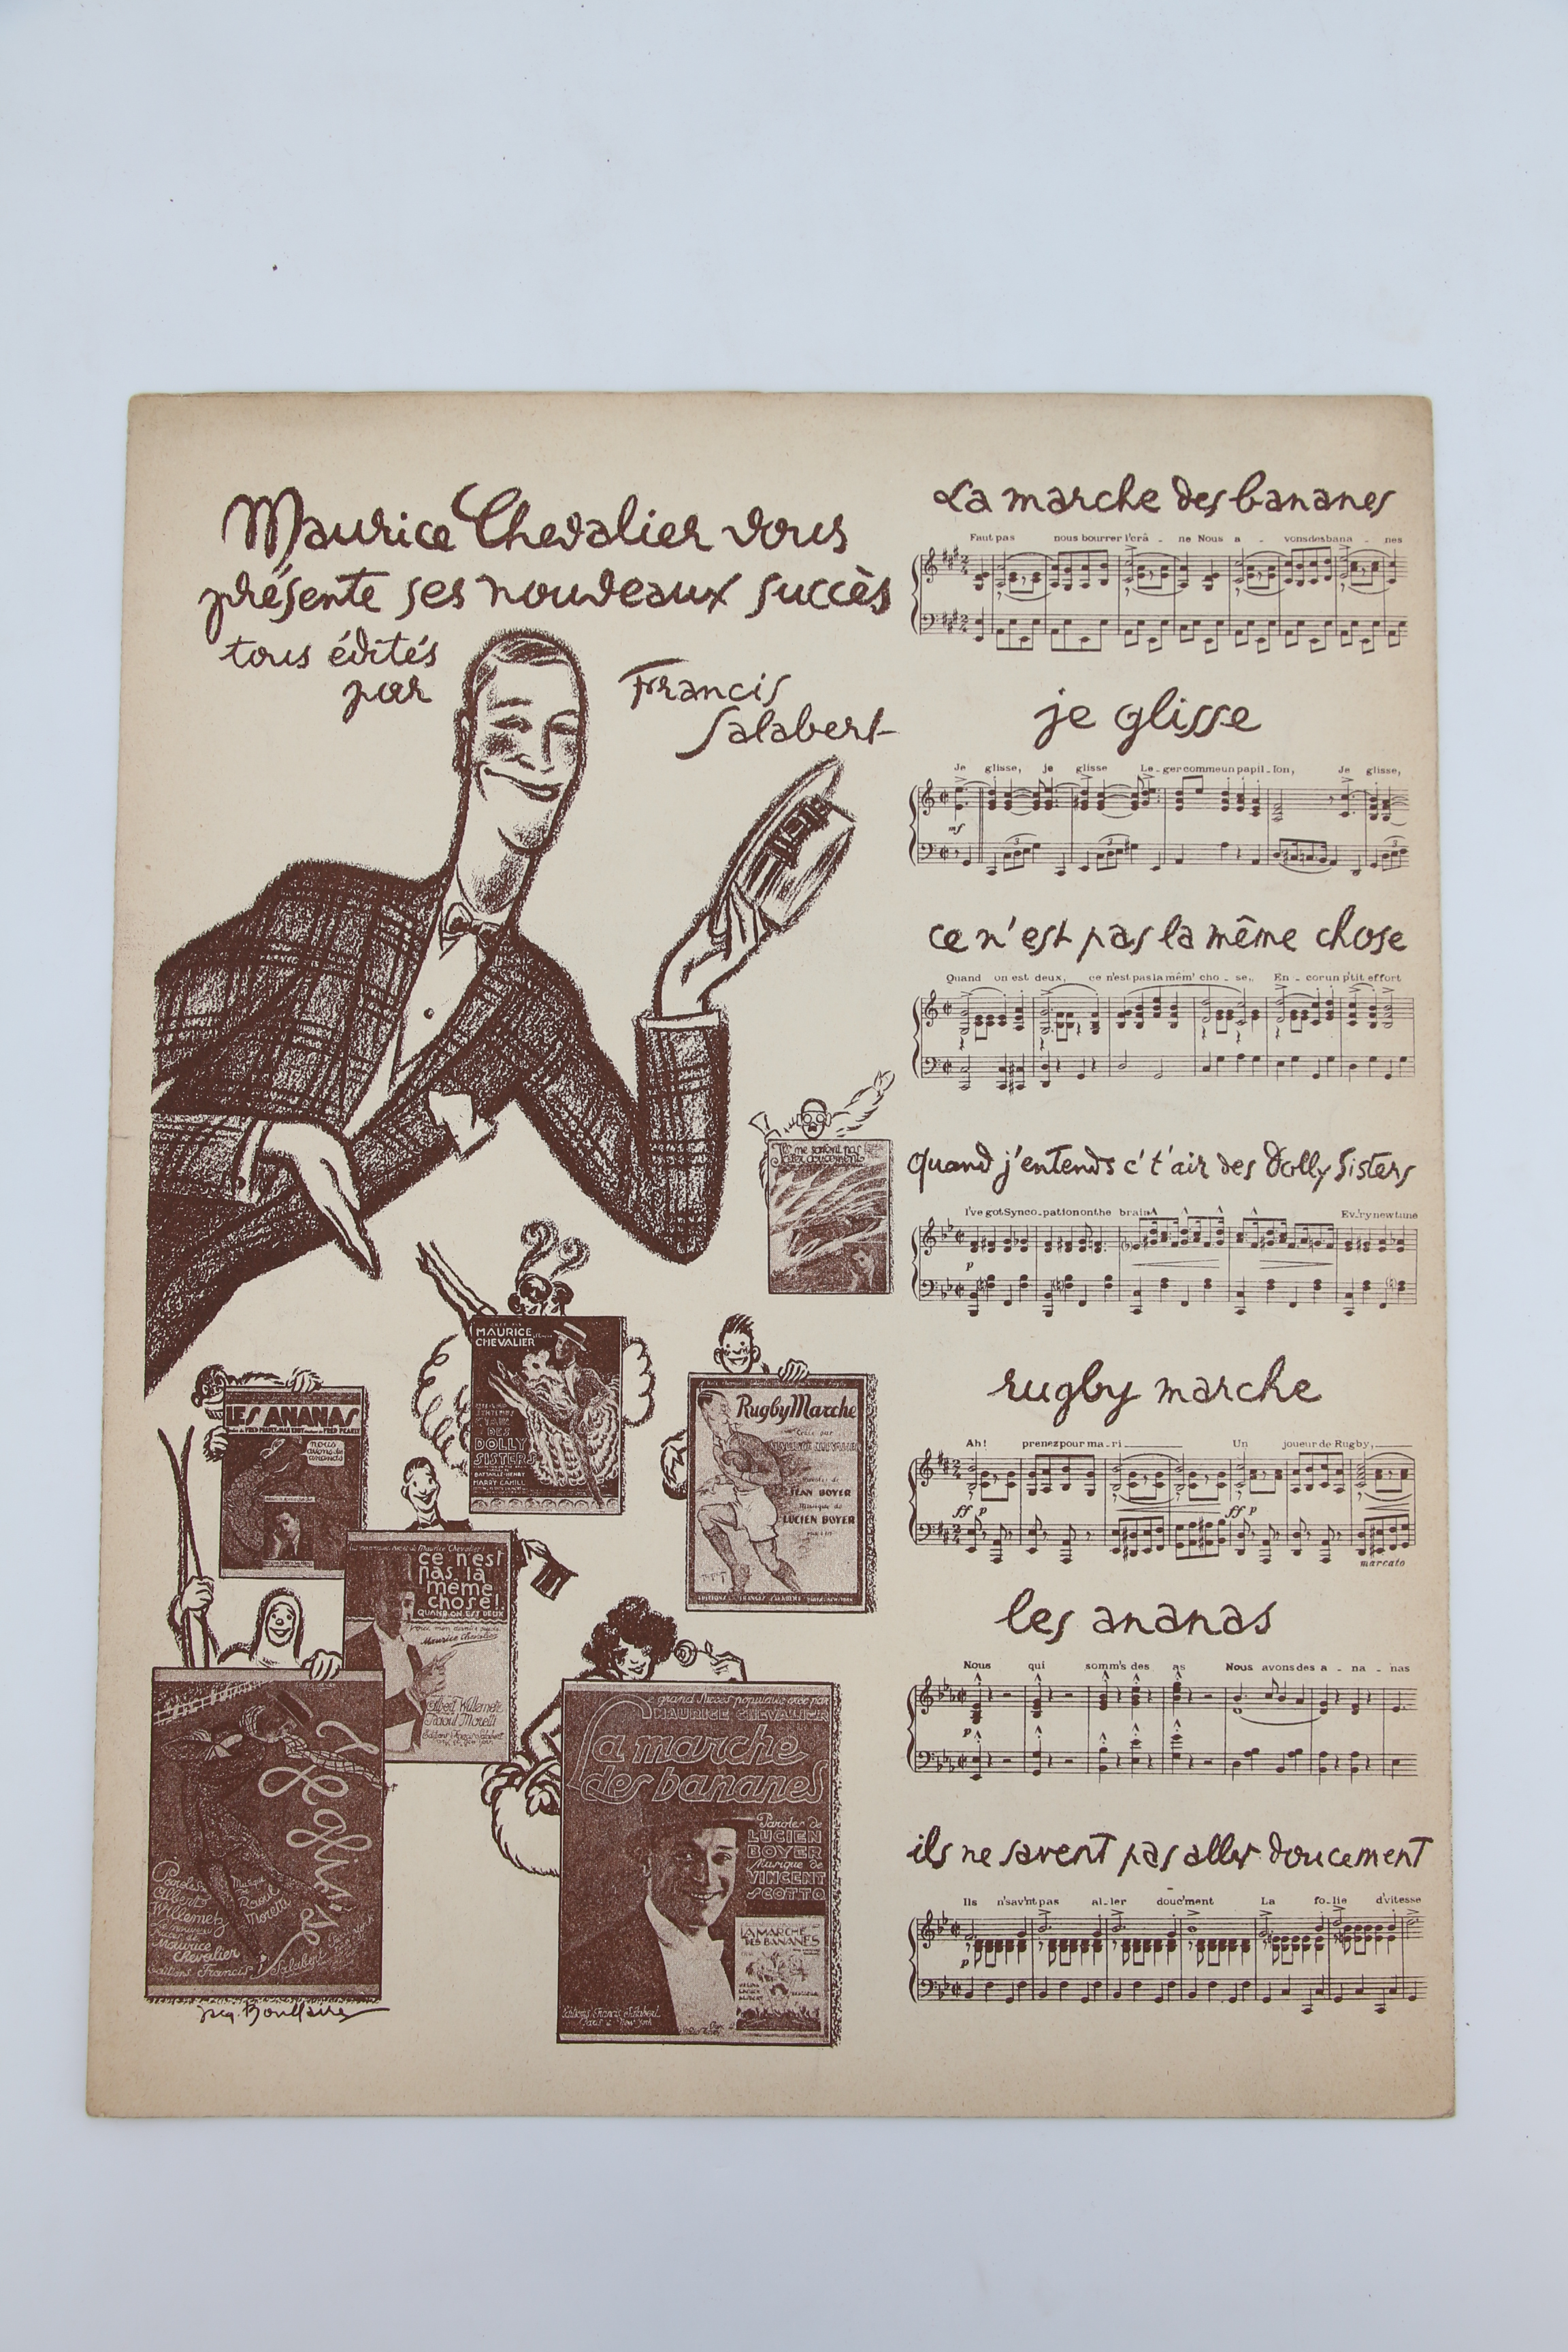 Maurice Chevalier vous
présente ses nouveaux succès
tous édités
par
Francis
Salabert
La marche des bananes
Faut pas nous bourrer l'crâ - ne Nous a - vons des bana - nes
je glisse
Je glisse, je glisse Le - ger comme un papil - lon, Je glisse,
mf
ce n'est pas la même chose
Quand on est deux, ce n'est pas la mêm' cho - se, En - cor un p'tit effort
quand j'entends c't'air des Dolly Sisters
I've got Synco - pation on the brain Ev'ry new tune
p
rugby marche
Ah! prenez pour ma - ri Un joueur de Rugby,
ff p ff p
marcato
les ananas
Nous qui somm's des as Nous avons des a - na - nas
p
ils ne savent pas aller doucement
Ils n'sav'nt pas al - ler douc'ment La fo - lie d'vitesse
p
Ils ne savent pas
aller doucement
MAURICE
CHEVALIER
DES
DOLLY
SISTERS
BATTAILLE-HENRY
HARRY CAHILL
LES ANANAS
nous
avons des
ananas
Rugby Marche
Paroles de
JEAN BOYER
Musique de
LUCIEN BOYER
EDITIONS FRANCIS SALABERT PARIS NEW-YORK
ce n'est
pas la
même
chose!
QUAND ON EST DEUX
Maurice Chevalier
Albert Willemetz
Raoul Moretti
Editions Francis Salabert
Je glisse
Paroles
Albert
Willemetz
Musique
de
Raoul
Moretti
Le nouveau
succès de
Maurice
Chevalier
Editions Francis Salabert
Le grand succès populaire créé par
MAURICE CHEVALIER
La marche
des bananes
Paroles de
LUCIEN
BOYER
Musique de
VINCENT
SCOTTO
LA MARCHE
DES BANANES
Editions Francis Salabert
Paris & New York
Jacq. Boullaire